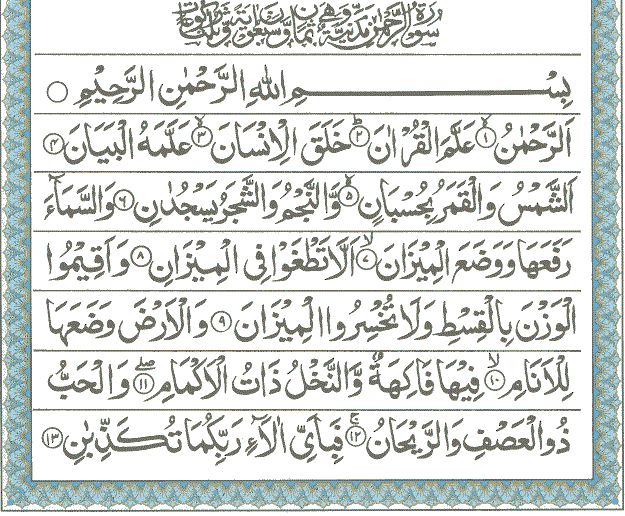 سُوْرَةُ الرَّحْمٰنِ مَدَنِيَّةٌ وَّهِيَ ثَمَانٌ وَّسَبْعُوْنَ اٰيَةً وَّثَلٰثُ
بِسْمِ اللّٰهِ الرَّحْمٰنِ الرَّحِيْمِ
اَلرَّحْمٰنُ ۙ﴿۱﴾ عَلَّمَ الْقُرْاٰنَ ؕ﴿۲﴾ خَلَقَ الْاِنْسَانَ ۙ﴿۳﴾ عَلَّمَهُ الْبَيَانَ ﴿۴﴾
اَلشَّمْسُ وَالْقَمَرُ بِحُسْبَانٍ ۙ﴿۵﴾ وَّالنَّجْمُ وَالشَّجَرُ يَسْجُدٰنِ ﴿۶﴾ وَالسَّمَآءَ
رَفَعَهَا وَوَضَعَ الْمِيْزَانَ ۙ﴿۷﴾ اَلَّا تَطْغَوْا فِى الْمِيْزَانِ ﴿۸﴾ وَاَقِيْمُوا
الْوَزْنَ بِالْقِسْطِ وَلَا تُخْسِرُوا الْمِيْزَانَ ﴿۹﴾ وَالْاَرْضَ وَضَعَهَا
لِلْاَنَامِ ۙ﴿۱۰﴾ فِيْهَا فَاكِهَةٌ وَّالنَّخْلُ ذَاتُ الْاَكْمَامِ ۖ﴿۱۱﴾ وَالْحَبُّ
ذُو الْعَصْفِ وَالرَّيْحَانُ ۚ﴿۱۲﴾ فَبِاَىِّ اٰلَآءِ رَبِّكُمَا تُكَذِّبٰنِ ﴿۱۳﴾